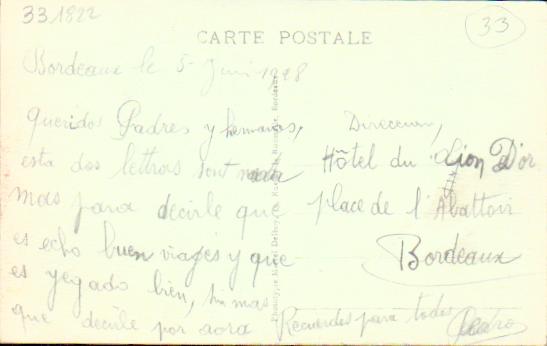 33 1822
33
CARTE POSTALE
Bordeaux le 5 Juin 1928
Queridos Padres y hermanas,
esta dos lettras sont
mas para decirle que
es echo buen viajes y que
es yegado bien, sin mas
que decirle por aora Recuerdos para todos
Pedro
Direccion,
Hôtel du Lion D'or
place de l'Abattoir
Bordeaux